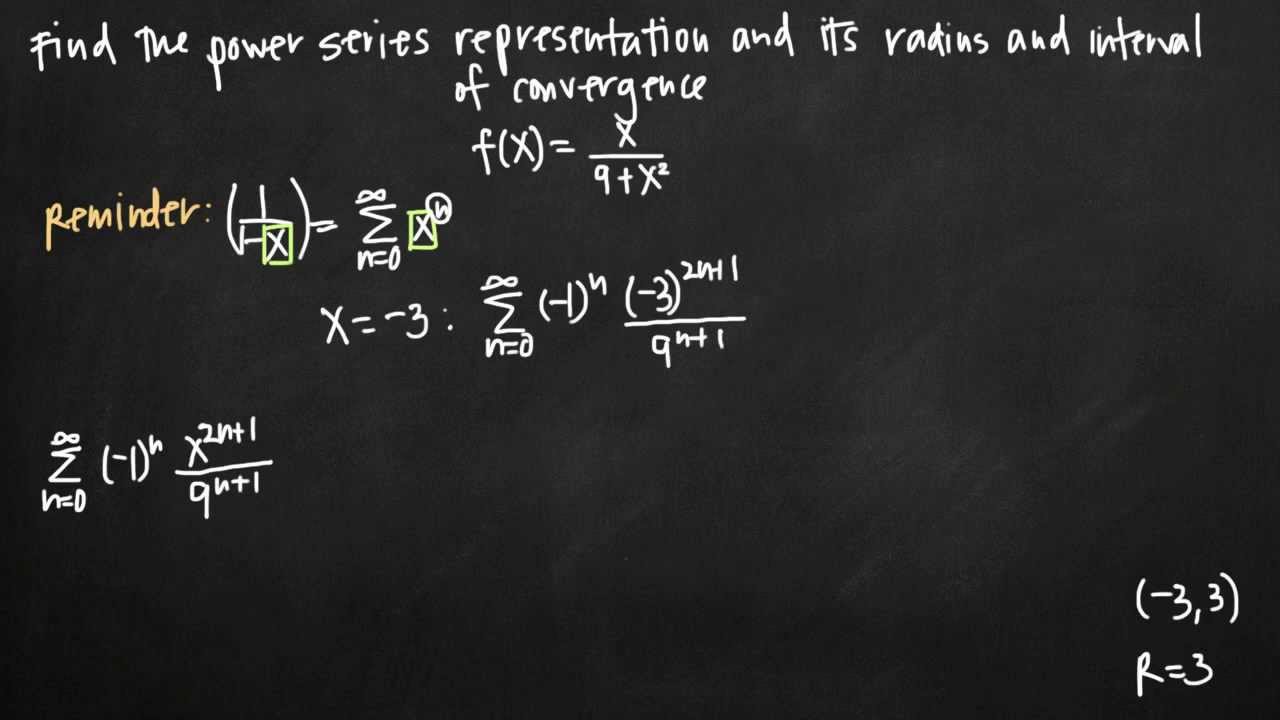 Find the power series representation and its radius and interval
of convergence
f(x) = x / (9 + x²)
Reminder: (1 / (1 - x)) = ∑_{n=0}^{∞} x^n
x = -3 : ∑_{n=0}^{∞} (-1)^n (-3)^{2n+1} / 9^{n+1}
∑_{n=0}^{∞} (-1)^n x^{2n+1} / 9^{n+1}
(-3, 3)
R = 3